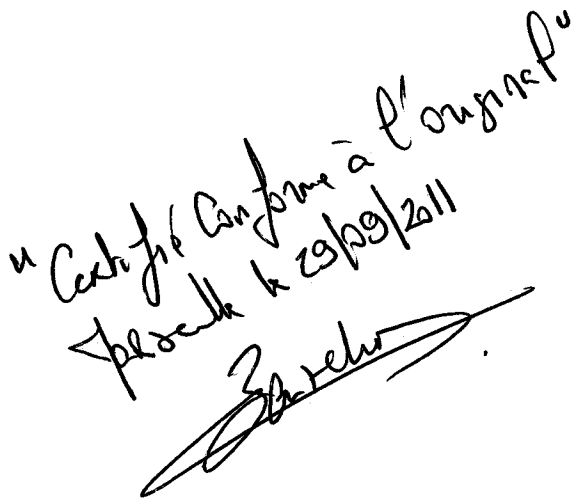 "Certifié Conforme à l'original"
le 29/09/2011